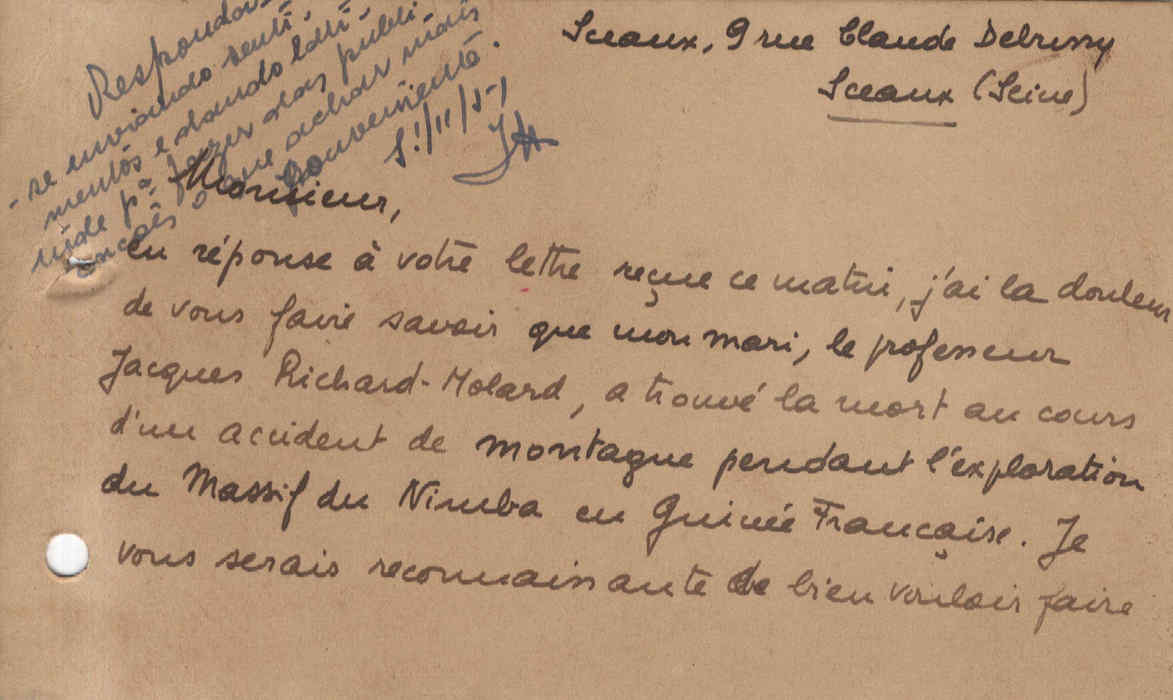 Sceaux, 9 rue Claude Debussy
Sceaux (Seine)
Responda-
-se enviando senti-
mentos e dando lati-
tude pª fazer das publi
o que achar mais
conveniente.
S!/11/51
Monsieur,
en réponse à votre lettre reçue ce matin, j'ai la douleur
de vous faire savoir que mon mari, le professeur
Jacques Richard-Molard, a trouvé la mort au cours
d'un accident de montagne pendant l'exploration
du Massif du Nimba en Guinée Française. Je
vous serais reconnaissante de bien vouloir faire